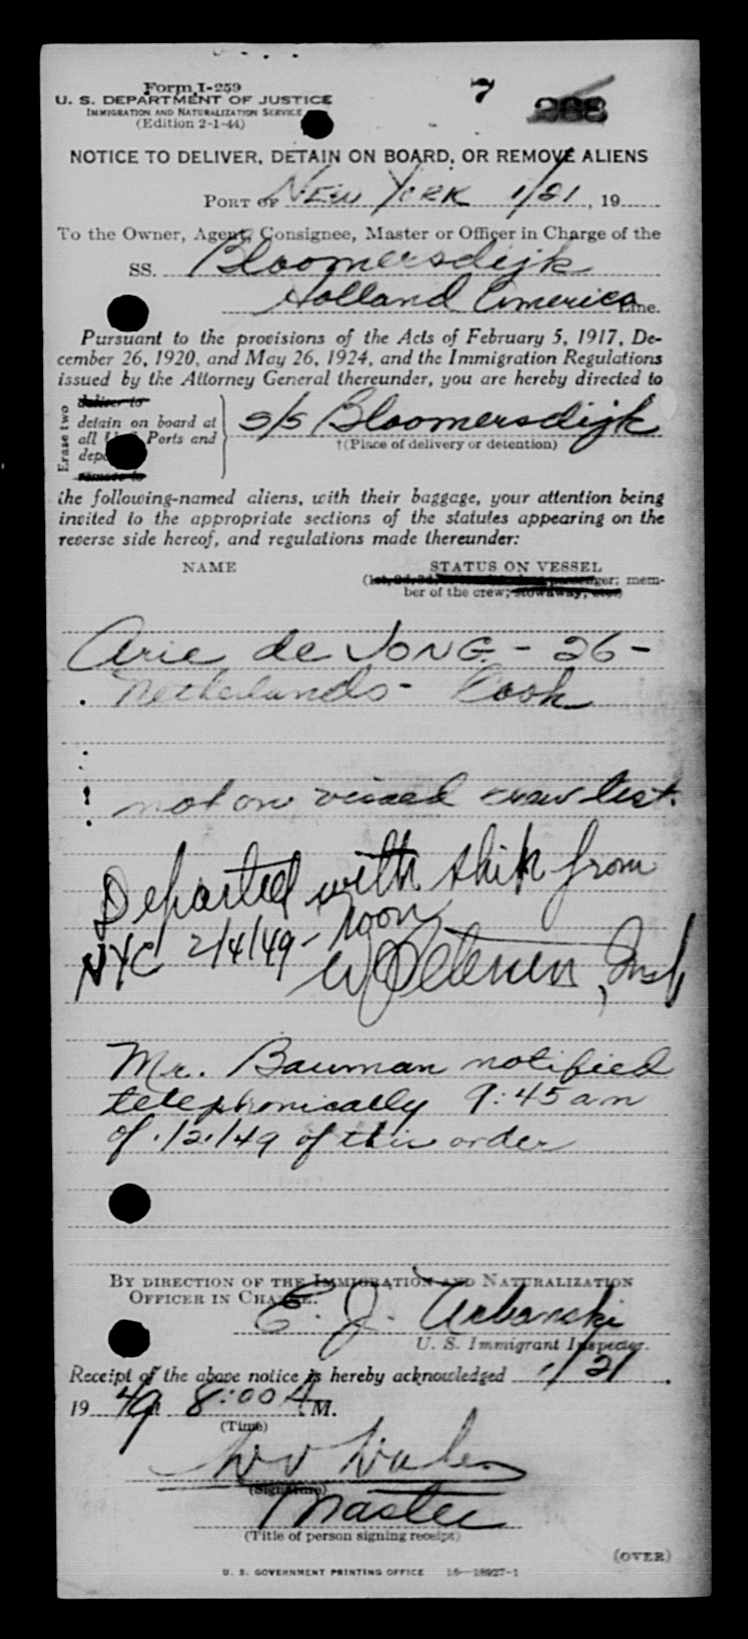 7 268
Form I-259
U. S. DEPARTMENT OF JUSTICE
IMMIGRATION AND NATURALIZATION SERVICE
(Edition 2-1-44)
NOTICE TO DELIVER, DETAIN ON BOARD, OR REMOVE ALIENS
PORT OF New York 1/21, 19
To the Owner, Agent, Consignee, Master or Officer in Charge of the
SS. Bloomersdijk
Holland America Line.
Pursuant to the provisions of the Acts of February 5, 1917, De-
cember 26, 1920, and May 26, 1924, and the Immigration Regulations
issued by the Attorney General thereunder, you are hereby directed to
Erase two
deliver to
detain on board at
all Ports and
remove to
S/S Bloomersdijk
†(Place of delivery or detention)
the following-named aliens, with their baggage, your attention being
invited to the appropriate sections of the statutes appearing on the
reverse side hereof, and regulations made thereunder:
NAME STATUS ON VESSEL
passenger; mem-
ber of the crew; stowaway, etc.)
Arie de JONG - 26 -
Netherlands - Cook
not on visaed crew list.
Departed with ship from
NYC 2/4/49 - Noon
W Petersen, Insp
Mr. Bauman notified
telephonically 9:45 am
of 1/21/49 of this order
BY DIRECTION OF THE IMMIGRATION AND NATURALIZATION
OFFICER IN CHARGE.
E. J. Urbanski
U. S. Immigrant Inspector.
Receipt of the above notice is hereby acknowledged 1/21.
19 49 8:00 A. M.
(Time)
(Signature)
Master
(Title of person signing receipt)
(OVER)
U. S. GOVERNMENT PRINTING OFFICE 16—18927-1